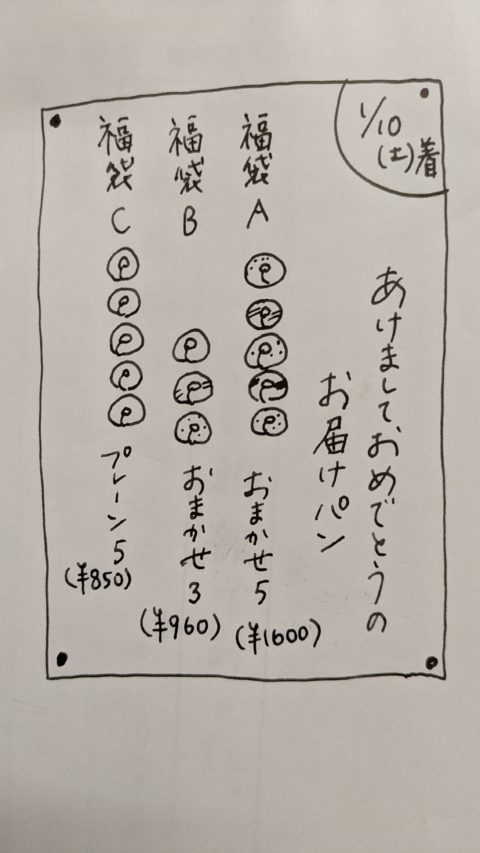 1/10
(土)着
あけましておめでとうの
お届けパン
福袋 A おまかせ 5
(¥1600)
福袋 B おまかせ 3
(¥960)
福袋 C プレーン 5
(¥850)